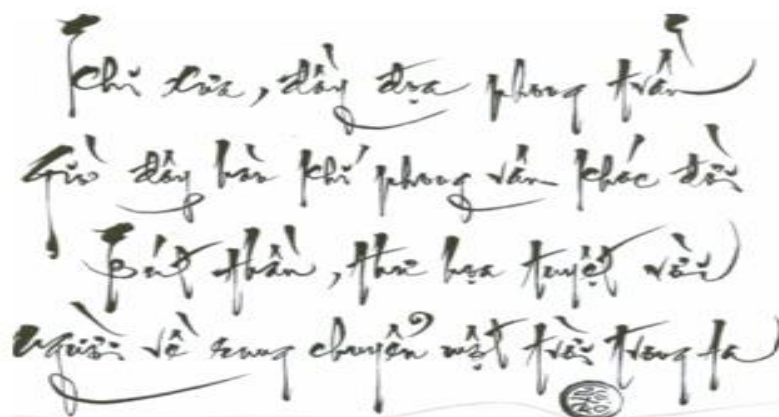 Khi xưa, đầy đọa phong trần
Giờ đây hào khí phong vân khác đời
Bút thần, thư họa tuyệt vời
Người về rung chuyển một trời trong ta